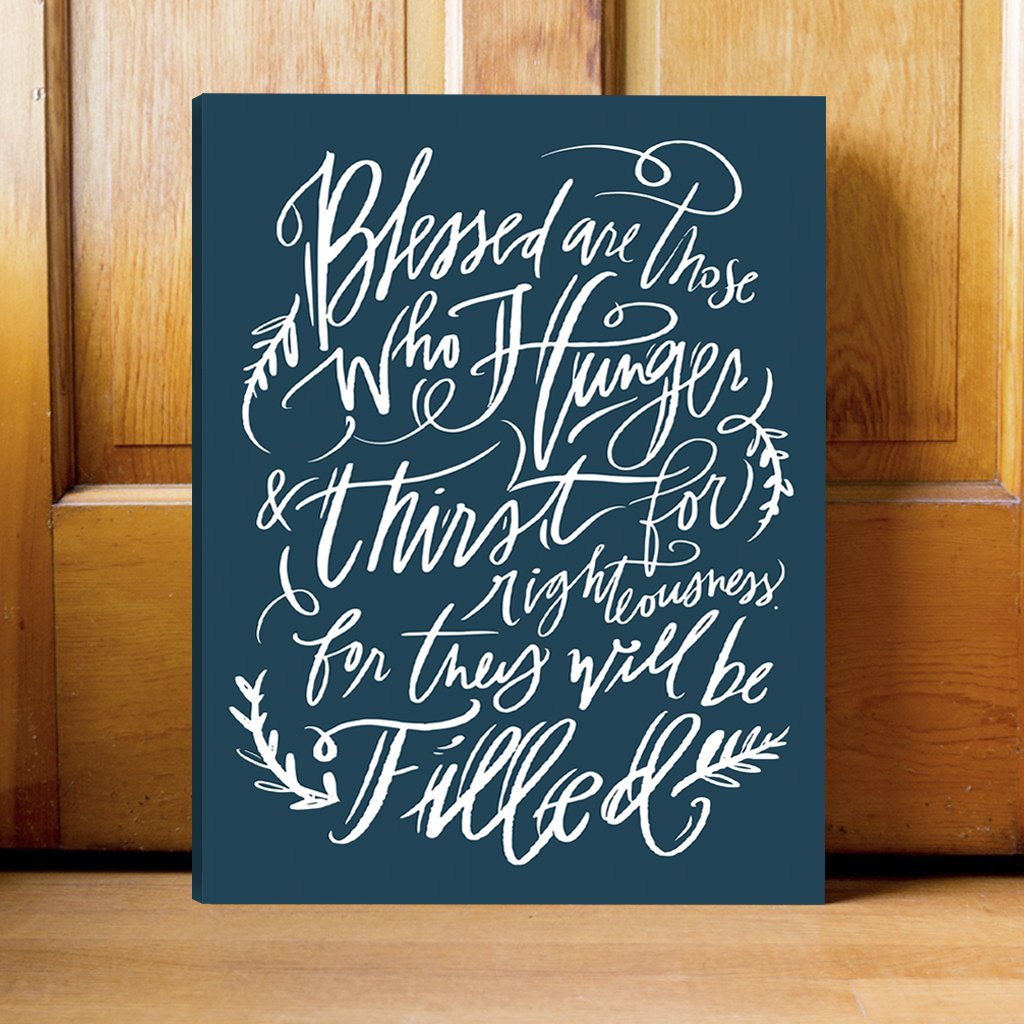 Blessed are those
Who Hunger
& thirst for
righteousness.
for they will be
Filled